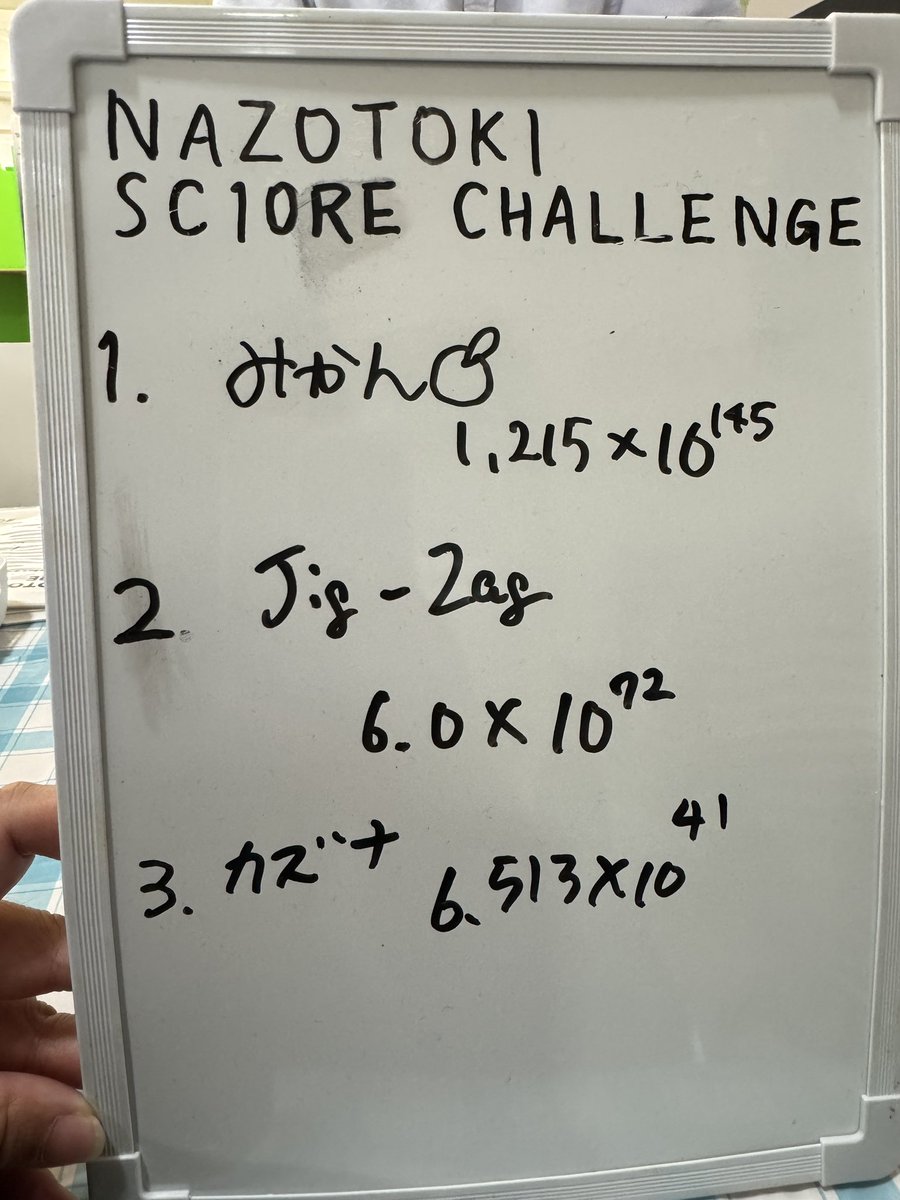 NAZOTOKI
SC10RE CHALLENGE
1. みかん
1,215×10¹⁴⁵
2. Jig-Zag
6.0×10⁷²
3. カズナ 6.513×10⁴¹